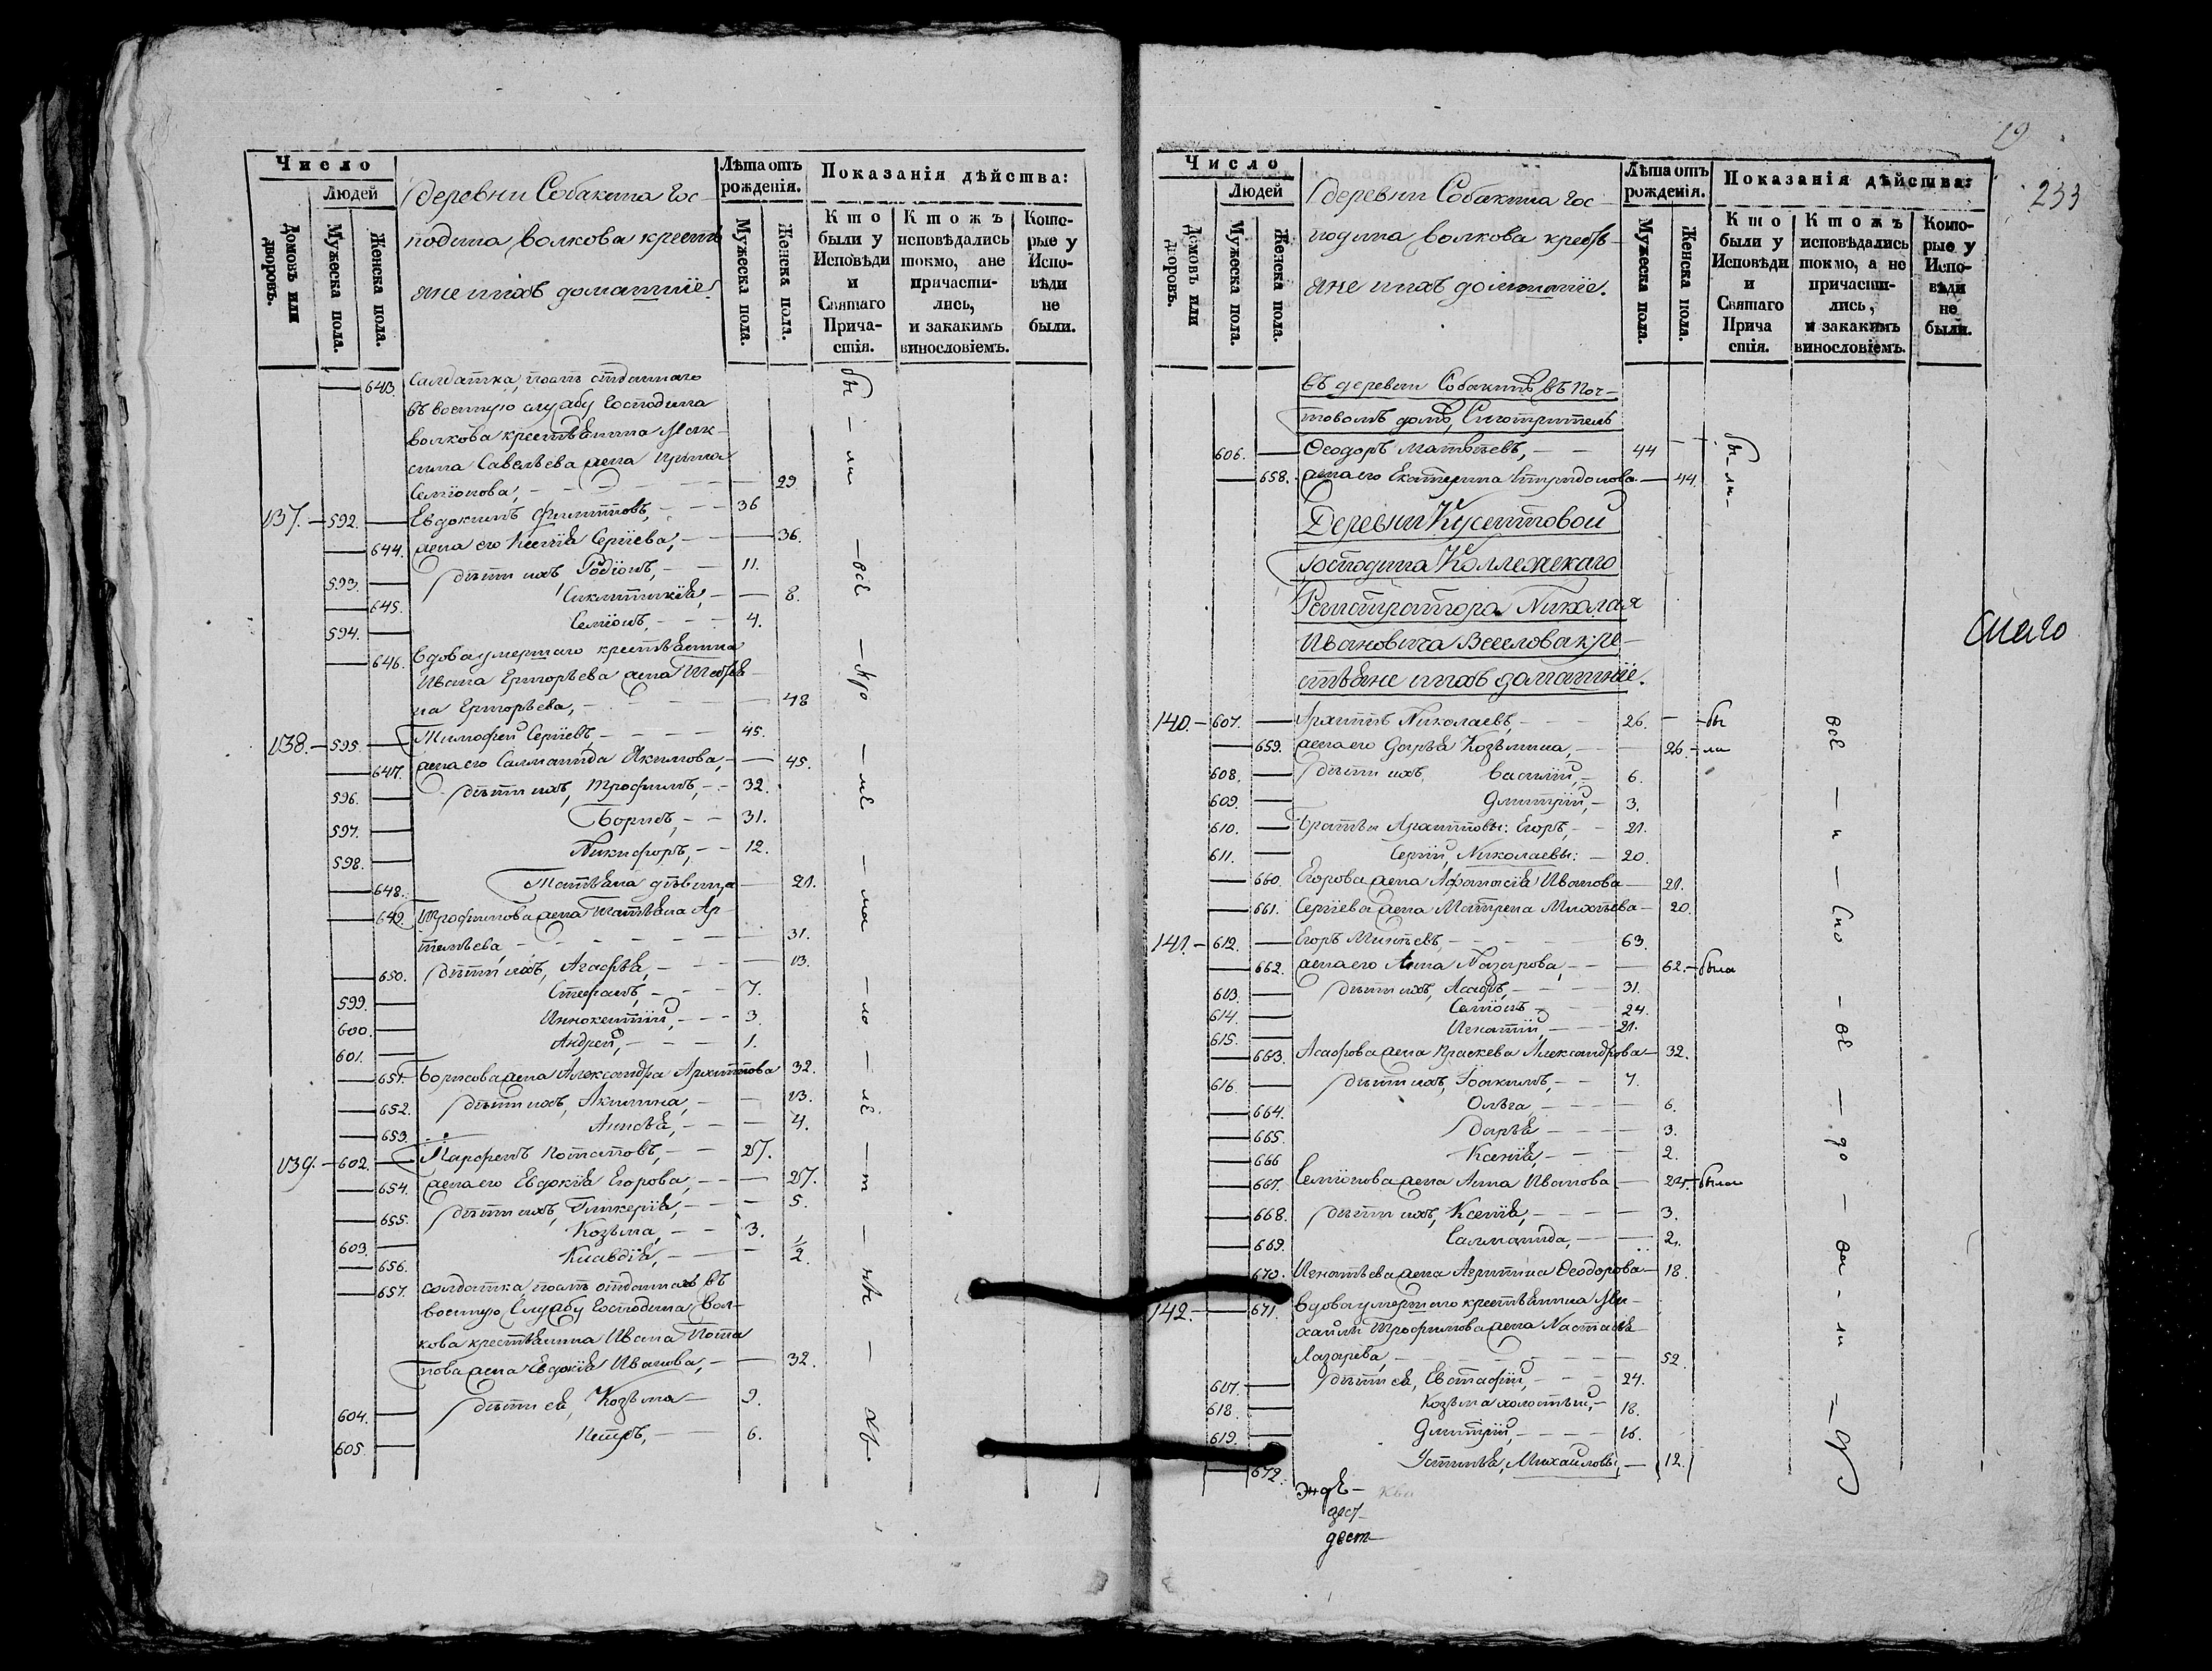 Число
Людей
Домовъ или дворовъ.
Мужеска пола.
Женска пола.
деревни Собакина Гос-
подина Волкова крестья
яне и ихъ домашніе.
Лѣта отъ рожденія.
Мужеска пола.
Женска пола.
Показанія дѣйства:
Кто были у Исповѣди и Святаго Прича-стія.
Ктожъ исповѣдались токмо, ане причасти-лись, и закакимъ винословіемъ.
Кото-рые у Испо-вѣди не были.
643. Салдатка,

въ военную службу Господина
Волкова крестьянина Мак-
сима Савельева жена Ирина
Семіонова, 29
137. 592. Евдокимъ Филиповъ, 36
644. жена его Ксенія Сергіева, 36.
593. дѣти ихъ Родіонъ, 11.
645. Синклитикія, 8.
594. Семіонъ, 4.
646. вдова умершаго крестьянина
Ивана Григорьева жена
на Григорьева, 48
138. 595. Тимофей Сергіевъ, 45.
647. жена его Саламанида Якимова, 45.
596. дѣти ихъ, Трофимъ, 32.
597. Борисъ, 31.
598. Никифоръ, 12.
648. Татьяна дѣвица 21.
649. Трофимова жена Татьяна Ар-
темьева, 31.
650. дѣти ихъ, Агафья, 13.
599. Стефанъ, 7.
600. Иннокентій, 3.
601. Андрей, 1.
651. Борисова жена Александра Архиппова 32.
652. дѣти ихъ, Акилина, 13.
653. Анисья, 4.
139. 602. Парфенъ Потаповъ, 27.
654. жена его Евдокія Егорова, 27.
655. дѣти ихъ, Гликерія, 5.
603. Козьма, 3.
656. Клавдія, 1/2
657. солдатка, въ
военную Службу Господина Вол-
кова крестьянина Ивана Пота
пова жена Евдокія Иванова, 32.
604. дѣти ея, Козьма 9.
605. Петръ, 6.
бы - ли - всѣ - кр - - ма - ло - лѣ - т - нъ - хъ
19
233
Число
Людей
Домовъ или дворовъ.
Мужеска пола.
Женска пола.
деревни Собакина Гос-
подина Волкова кресть-
яне и ихъ домашніе.
Лѣта отъ рожденія.
Мужеска пола.
Женска пола.
Показанія дѣйства:
Кто были у Исповѣди и Святаго Прича стія.
Ктожъ исповѣдались токмо, а не причасти-лись, и закакимъ винословіемъ.
Кото-рые у Испо-вѣди не были.
въ деревни Собакинѣ въ Поч-
товомъ домѣ, Смотритель
606. Ѳеодоръ Матвѣевъ, 44
658. жена его Екатерина Спиридонова 44.
бы ли
Деревни Кусеиновой
Господина Коллежскаго
Регистратора Николая
Ивановича Веселова кре-
стьяне и ихъ домашніе.
140. 607. Архипъ Николаевъ, 26. бы
659. жена его Дарья Козьмина, 26 ли
608. дѣти ихъ, Василій, 6.
609. Дмитрій, 3.
610. Братья Архиповы: Егоръ, 21.
611. Сергій, Николаевы: 20.
660. Егорова жена Афанасія Иванова 21.
661. Сергіева жена Матрена Михѣева 20.
141. 612. Егоръ Михѣевъ, 63.
662. жена его Анна Назарова, 62. была
613. дѣти ихъ, Асафъ, 31.
614. Семіонъ 24.
615. Игнатій, 21.
663. Асафова жена Праскева Александрова 32.
616. дѣти ихъ, Іоакимъ, 7.
664. Ольга, 6.
665. Дарья 3.
666 Ксенія, 2.
667. Семіонова жена Анна Иванова 24. была
668. дѣти ихъ, Ксенія, 3.
669. Саламанида, 2.
670. Игнатьева жена Агрипина Ѳеодорова 18.
142. 671. вдова умершаго крестьянина Ми-
хаила Трофимова жена Настасья
Лазарева, 52.
617. дѣти ея, Евстафій, 24.
618. Козьма холостый, 18.
619. Дмитрій, 16.
672. Устинья, Михайловы, 12.
всѣ - и - спо - вѣ - до - ва - ли -
дест